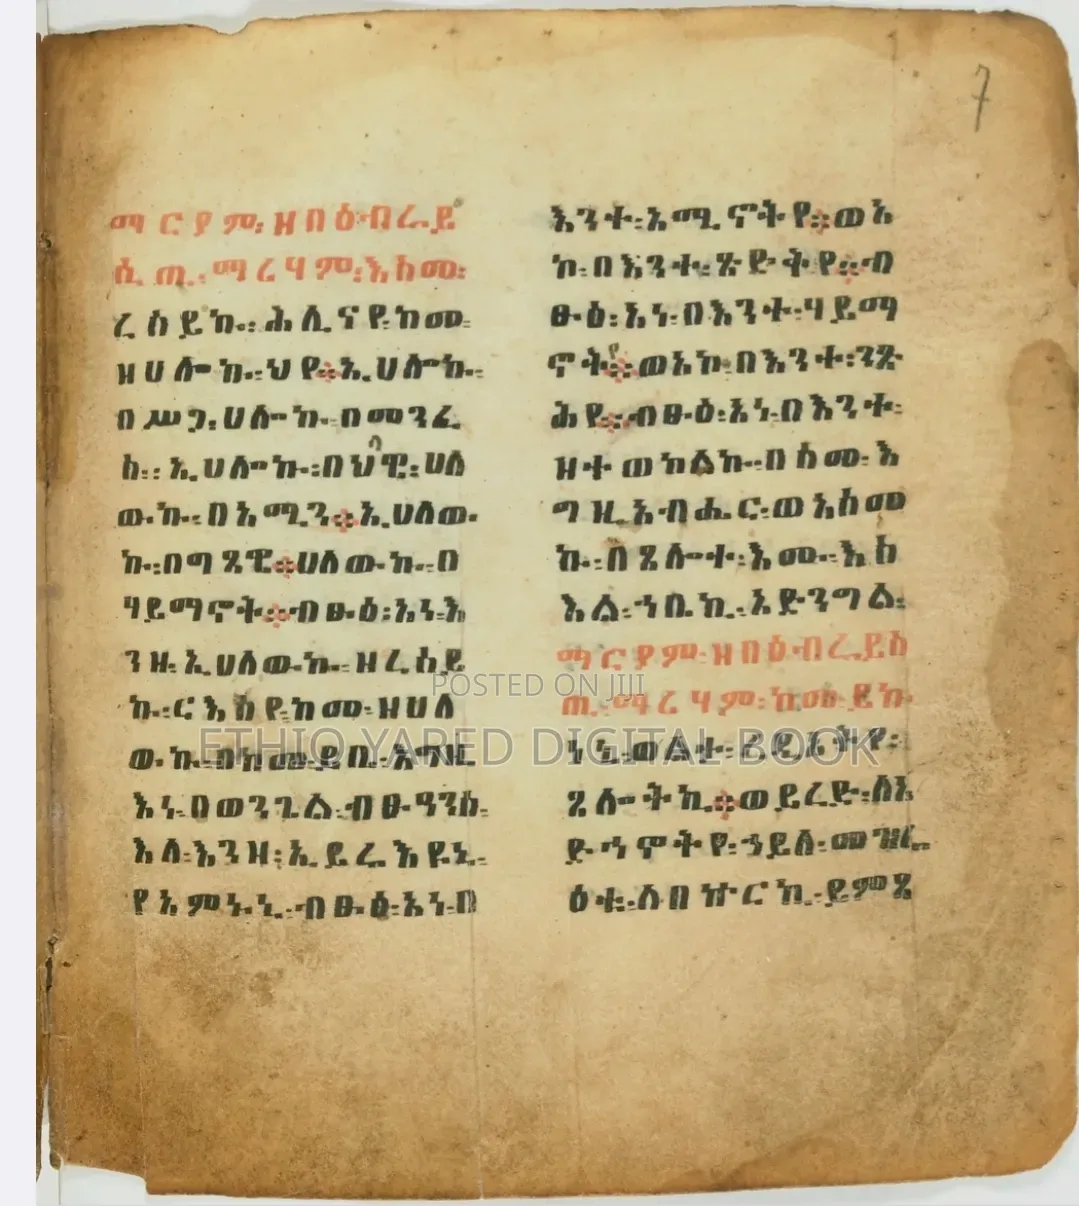 7
ማርያም፡ዘበዕብራይ
ሲጢ፡ማሪሃም፡እስመ፡
ረሰይኩ፡ሕሊናየ፡ከመ፡
ዘሀሎኩ፡ህየ፡ኢሀሎኩ፡
በሥጋ፡ሀሎኩ፡በመንፈ
ስ፡ኢሀሎኩ፡በህ
ውኩ፡በአሚን፡ኢሀለው
ኩ፡በገጽየ፡ሀለውኩ፡በ
ሃይማኖት፡ብፁዕ፡አነ፡እ
ንዘ፡ኢሀለውኩ፡ዘረሰይ
ኩ፡ርእስየ፡ከመ፡ዘሀለ
ውኩ፡በከመ፡ይቤ፡እግዚ
እነ፡በወንጌል፡ብፁዓን፡
እለ፡እንዘ፡ኢይሬእዩኒ፡
የአምኑኒ፡ብፁዕ፡አነ፡በ
እንተ፡አሚኖትየ፡ወአ
ኮ፡በእንተ፡ጽድቅየ፡ብ
ፁዕ፡አነ፡በእንተ፡ሃይማ
ኖትየ፡ወአኮ፡በእንተ፡ንጽ
ሕየ፡ብፁዕ፡አነ፡በእንተ፡
ዘተወከልኩ፡በስመ፡እ
ግዚአብሔር፡ወአስመ
ኩ፡በጸሎተ፡እሙ፡እስ
እል፡ኀቤኪ፡ኦድንግል፡
ማርያም፡ዘበዕብራይስ
ጢ፡ማሪሃም፡ከመ፡ይኩ
ነኒ፡ወልታ፡ረዲኤትየ፡
ጸሎትኪ፡ወይረድ፡ለአ
ድኅኖትየ፡ኀይለ፡መዝራ
ዕቱ፡ለበኵርኪ፡ይምጻ
POSTED ON JIJI
ETHIO YARED DIGITAL BOOK